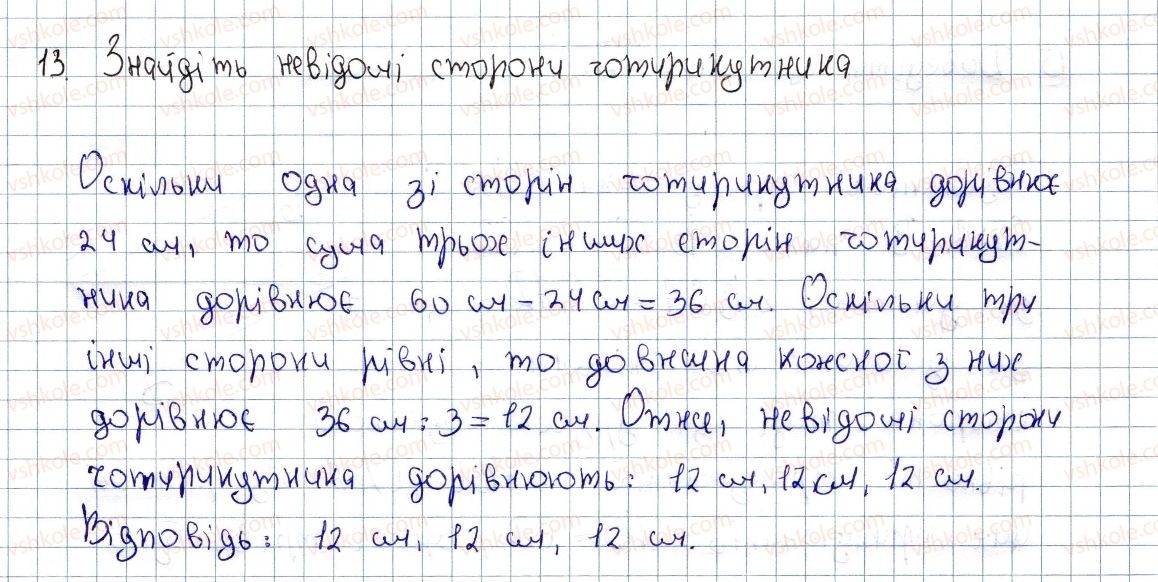 13. Знайдіть невідомі сторони чотирикутника
Оскільки одна зі сторін чотирикутника дорівнює
24 см, то сума трьох інших сторін чотирикут-
ника дорівнює 60 см - 24 см = 36 см. Оскільки три
інші сторони рівні, то довжина кожної з них
дорівнює 36 см : 3 = 12 см. Отже, невідомі сторони
чотирикутника дорівнюють: 12 см, 12 см, 12 см.
Відповідь: 12 см, 12 см, 12 см.